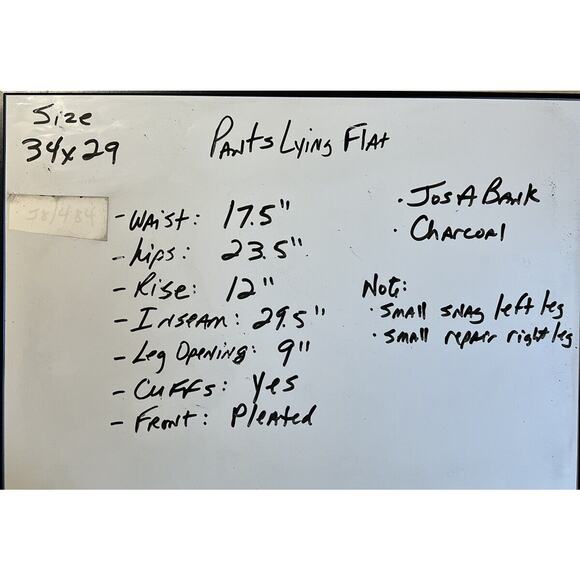 Size
34x29
Pants Lying Flat
- Waist: 17.5"
- hips: 23.5"
- Rise: 12"
- Inseam: 29.5"
- Leg Opening: 9"
- Cuffs: yes
- Front: Pleated
· Jos A Bank
· Charcoal
Note:
· small snag left leg
· small repair right leg